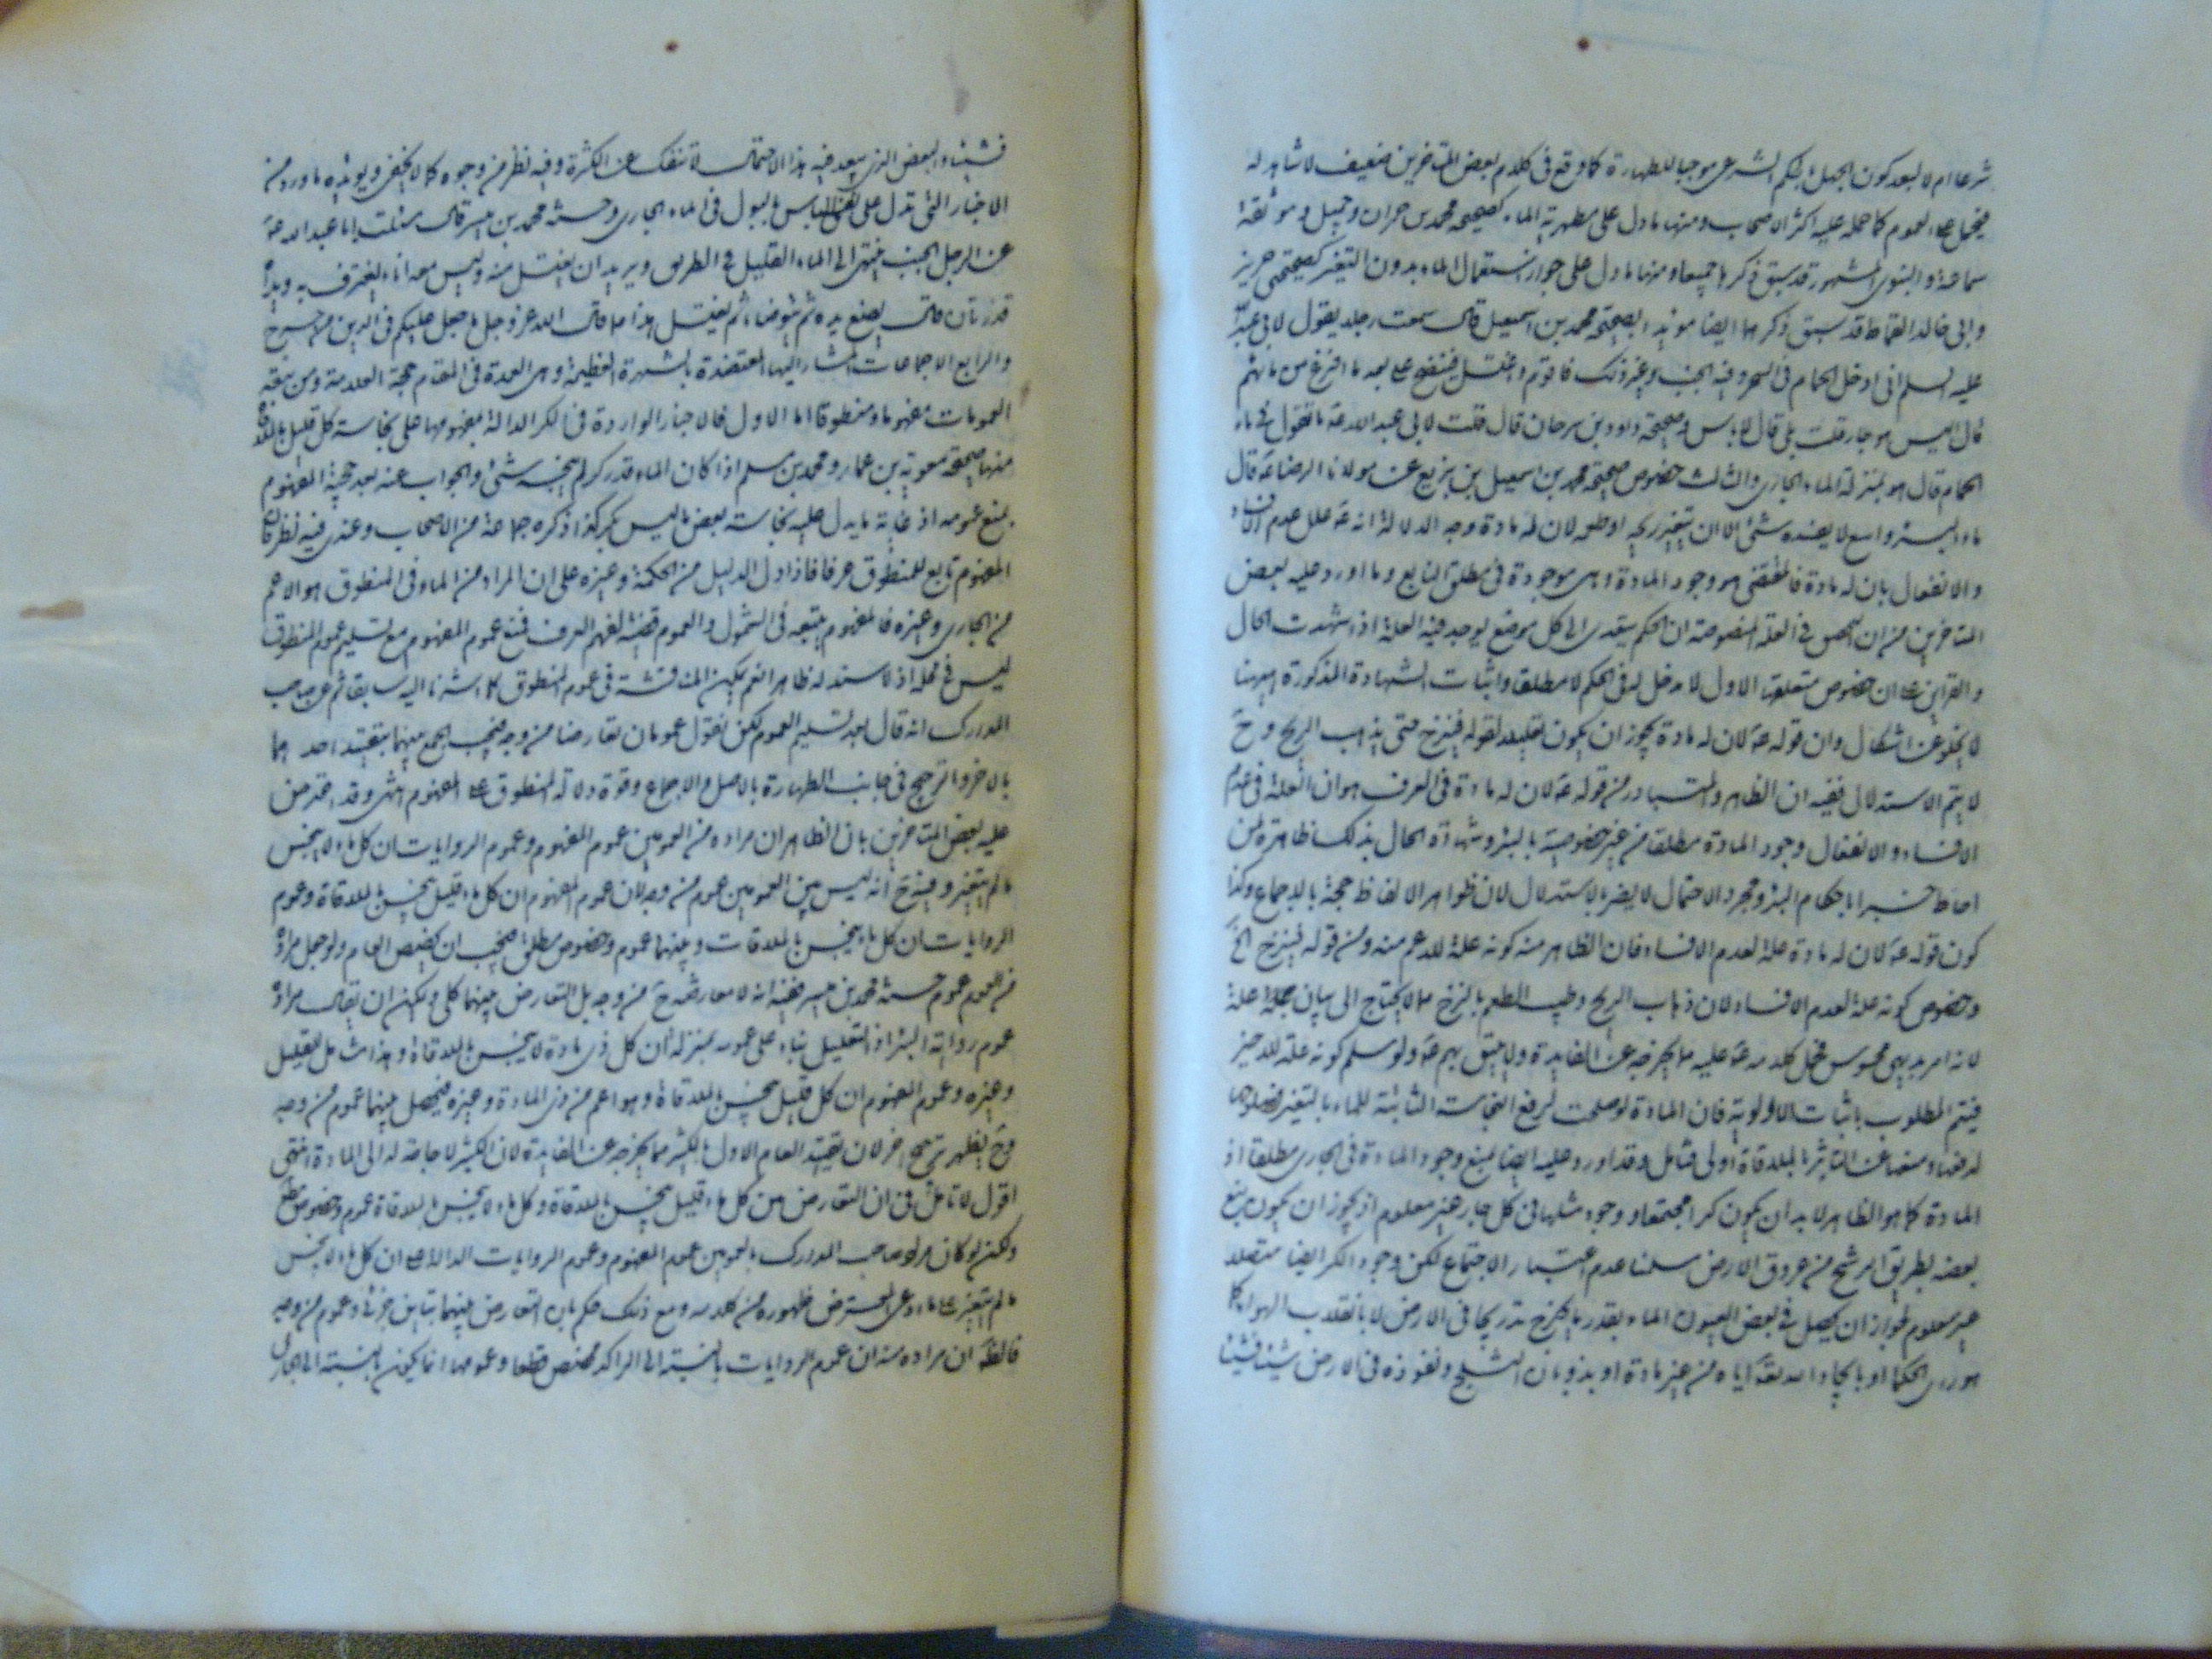 شرعا ام لا لبعد كون الجهل بالحكم الشرعى موجبا للطهارة كما وقع فى كلام بعض المتاخرين ضعيف لا شاهد له
على العموم كما حمله عليه اكثر الاصحاب ومنها ما دل على مطهرية الماء كصحيحة محمد بن حمران وجميل وموثقة
سماعة والنبوى المشهور قد سبق ذكرها جميعا ومنها ما دل على جواز استعمال الماء بدون التغير كصحيحتى حريز
وابى خالد القماط قد سبق ذكرهما ايضا مؤيدا بصحيحة محمد بن اسمعيل قال سمعت رجلا يقول لابى عبد الله
عليه السلم انى ادخل الحمام فى السحر وفيه الجنب وغير ذلك فاقوم واغتسل فينتضح على بعد ما افرغ من مائهم
قال اليس هو جار قلت بلى قال لا باس وصحيحة داود بن سرحان قال قلت لابى عبد الله عه ما تقول فى ماء
الحمام قال هو بمنزلة الماء الجارى والثالث خصوص صحيحة محمد بن اسمعيل بن بزيع عن مولانا الرضا عه قال
ماء البئر واسع لا يفسده شئ الا ان يتغير ريحه او طعمه لان له مادة وجه الدلالة انه عه علل عدم الافساد
والانفعال بان له مادة فالمقتضى هو وجود المادة وهى موجودة فى مطلق النابع وما اورد عليه بعض
المتاخرين من ان المخصوص فى العلة المنصوصة ان الحكم يتعدى الى كل موضع يوجد فيه العلة اذ اشهدت الحال
والقراين على ان خصوص متعلقها الاول لا مدخل له فى الحكم لا مطلقا واثبات الشهادة المذكورة ههنا
لا يخلو عن اشكال وان قوله عه لان له مادة يجوز ان يكون تعليلا لقوله فينزح حتى يذهب الريح وح
لا يتم الاستدلال ففيه ان الظاهر والمتبادر من قوله عه لان له مادة فى العرف هو ان العلة فى عدم
الافساد والانفعال وجود المادة مطلقا من غير خصوصية بالبئر وشهادة الحال بذلك ظاهرة لمن
احاط خبرا باحكام البئر ومجرد الاحتمال لا يضر بالاستدلال لان ظواهر الالفاظ حجة بالاجماع وكذا
كون قوله عه لان له مادة علة لعدم الافساد فان الظاهر منه كونه علة للاعم منه ومن قوله فينزح الخ
وخصوص كونه علة لعدم الافساد لان ذهاب الريح وطيب الطعم بالنزح مما لا يحتاج الى بيان علة
لانه امر بديهى محسوس فحمل كلامه عه عليه مما يخرجه عن الفايدة ولا يليق بهم عه ولو سلم كونه علة للاخير
فيتم المطلوب باثبات الاولوية فان المادة لو صلحت لرفع النجاسة الثابتة للماء بالتغير فصلوحها
لدفعها ومنعها عن التاثر بالملاقاة اولى فتامل وقد اورد عليه ايضا بمنع وجود المادة فى الجارى مطلقا اذ
المادة كما هو الظاهر لا بد ان يكون كرا مجتمعا ووجود مثلها فى كل جار غير معلوم اذ يجوز ان يكون نبع
بعضه بطريق الرشح من عروق الارض سلمنا عدم اعتبار الاجتماع لكن وجود الكر ايضا متصلا
غير معلوم لجواز ان يحصل فى بعض العيون الماء بقدر ما يخرج تدريجا فى الارض لا بانقلاب الهواء كما
هو راى الحكما او بايجاد الله تعه اياه من غير مادة او بذوبان الثلج ونفوذه فى الارض شيئا فشيئا
فشيئا والبعض الذى يبعد فيه هذا الاحتمال لا تنفك عن الكثرة وفيه نظر من وجوه كما لا يخفى ويؤيده ما ورد من
الاخبار التى تدل على نفى الباس بالبول فى الماء الجارى وحسنة محمد بن ميسر قال سئلت ابا عبد الله عه
عن الرجل الجنب ينتهى الى الماء القليل فى الطريق ويريد ان يغتسل منه وليس معه اناء يغترف به ويداه
قذرتان قال يضع يده ثم يتوضا ثم يغتسل هذا مما قال الله عز وجل ما جعل عليكم فى الدين من حرج
والرابع الاجماعات المشار اليها المعتضدة بالشهرة العظيمة وهى العمدة فى المقام حجة العلامة ومن تبعه
العمومات مفهوما ومنطوقا اما الاول فالاخبار الواردة فى الكر الدالة بمفهومها على نجاسة كل قليل بالملاقاة
منها صحيحة معوية بن عمار ومحمد بن مسلم اذا كان الماء قدر كر لم ينجسه شئ والجواب عنه بعد حجية المفهوم
بمنع عمومه اذ غاية ما يدل عليه نجاسة بعض ما ليس بكر كذا ذكره جماعة من الاصحاب وعندى فيه نظر فان
المفهوم تابع للمنطوق عرفا فاذا دل الدليل من الحكمة وغيره على ان المراد من الماء فى المنطوق هو الاعم
من الجارى وغيره فالمفهوم يتبعه فى الشمول والعموم قضية لفهم العرف فمنع عموم المفهوم مع تسليم عموم المنطوق
ليس فى محله اذ لا سند له ظاهرا نعم يمكن المناقشة فى عموم المنطوق كما اشرنا اليه سابقا ثم عن صاحب
المدارك انه قال بعد تسليم العموم لكن نقول عمومان تعارضا من وجه فيجب الجمع بينهما بتقييد احدهما
بالاخر والترجيح فى جانب الطهارة بالاصل والاجماع وقوة دلالة المنطوق على المفهوم انتهى وقد اعترض
عليه بعض المتاخرين بان الظاهر ان مراده من العمومين عموم المفهوم وعموم الروايات ان كل ماء لا ينجس
ما لم يتغير وفيه ح انه ليس بين العمومين عموم من وجه لان عموم المفهوم ان كل ماء قليل ينجس بالملاقاة وعموم
الروايات ان كل ماء ينجس بالملاقات وبينهما عموم وخصوص مطلق فيجب ان يخصص العام ولو جعل مراده
من العموم عموم حسنة محمد بن ميسر ففيه انه لا معارضة ح من وجه بل التعارض بينهما كلى ويمكن ان يقال مراده
عموم رواية البئر اذ التعليل بناء على عمومه بمنزلة ان كل ذى مادة لا ينجس بالملاقاة وهذا شامل للقليل
وغيره وعموم المفهوم ان كل قليل ينجس بالملاقاة وهو اعم من ذى المادة وغيره فيحصل بينهما عموم من وجه
وح يظهر ترجيح اخر لان تقييد العام الاول بالكثير مما يخرجه عن الفايدة لان الكثير لا حاجة له الى المادة انتهى
اقول لا تامل فى ان التعارض بين كل ماء قليل ينجس بالملاقاة وكل ماء لا ينجس بالملاقاة عموم وخصوص مطلق
ولكن لو كان مراد صاحب المدارك بالعمومين عموم المفهوم وعموم الروايات الدالة على ان كل ماء لا ينجس
ما لم يتغير على ما ادعى المعترض ظهوره من كلامه ومع ذلك حكم بان التعارض بينهما تباين جزئى وعموم من وجه
فالظ ان مراده منه ان عموم الروايات بالنسبة الى الراكد مخصص قطعا وعمومها انما يكون بالنسبة الى الجارى